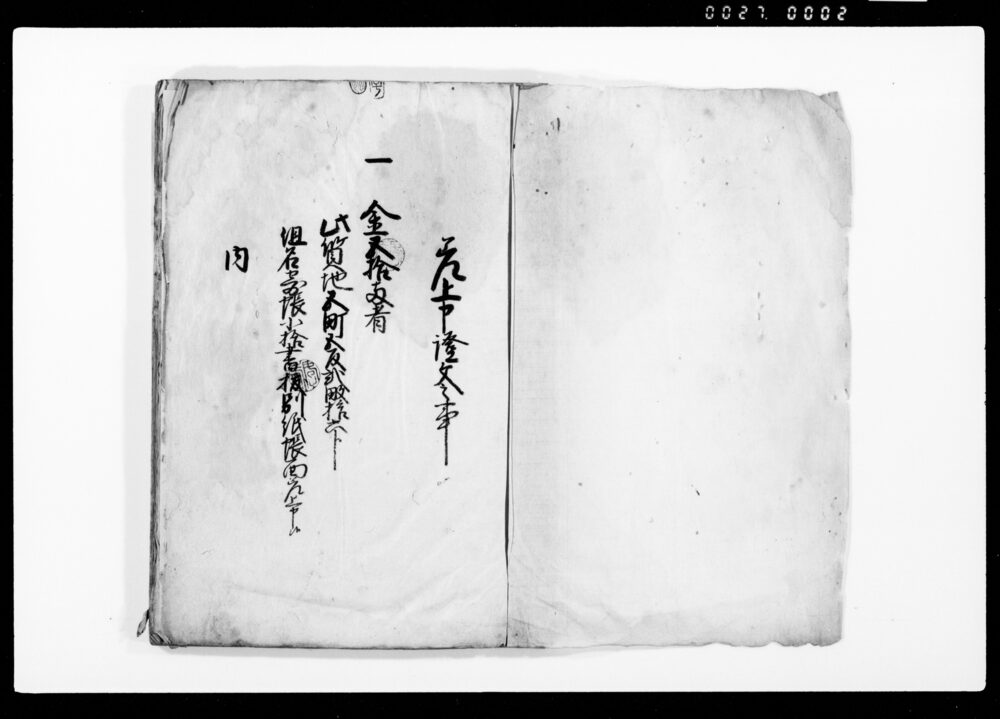 0027. 0002
差上申證文之事
一 金五拾両者
此質地五町五反弐畝拾六歩
組石高帳小拾書抜別紙帳面差上申候
内